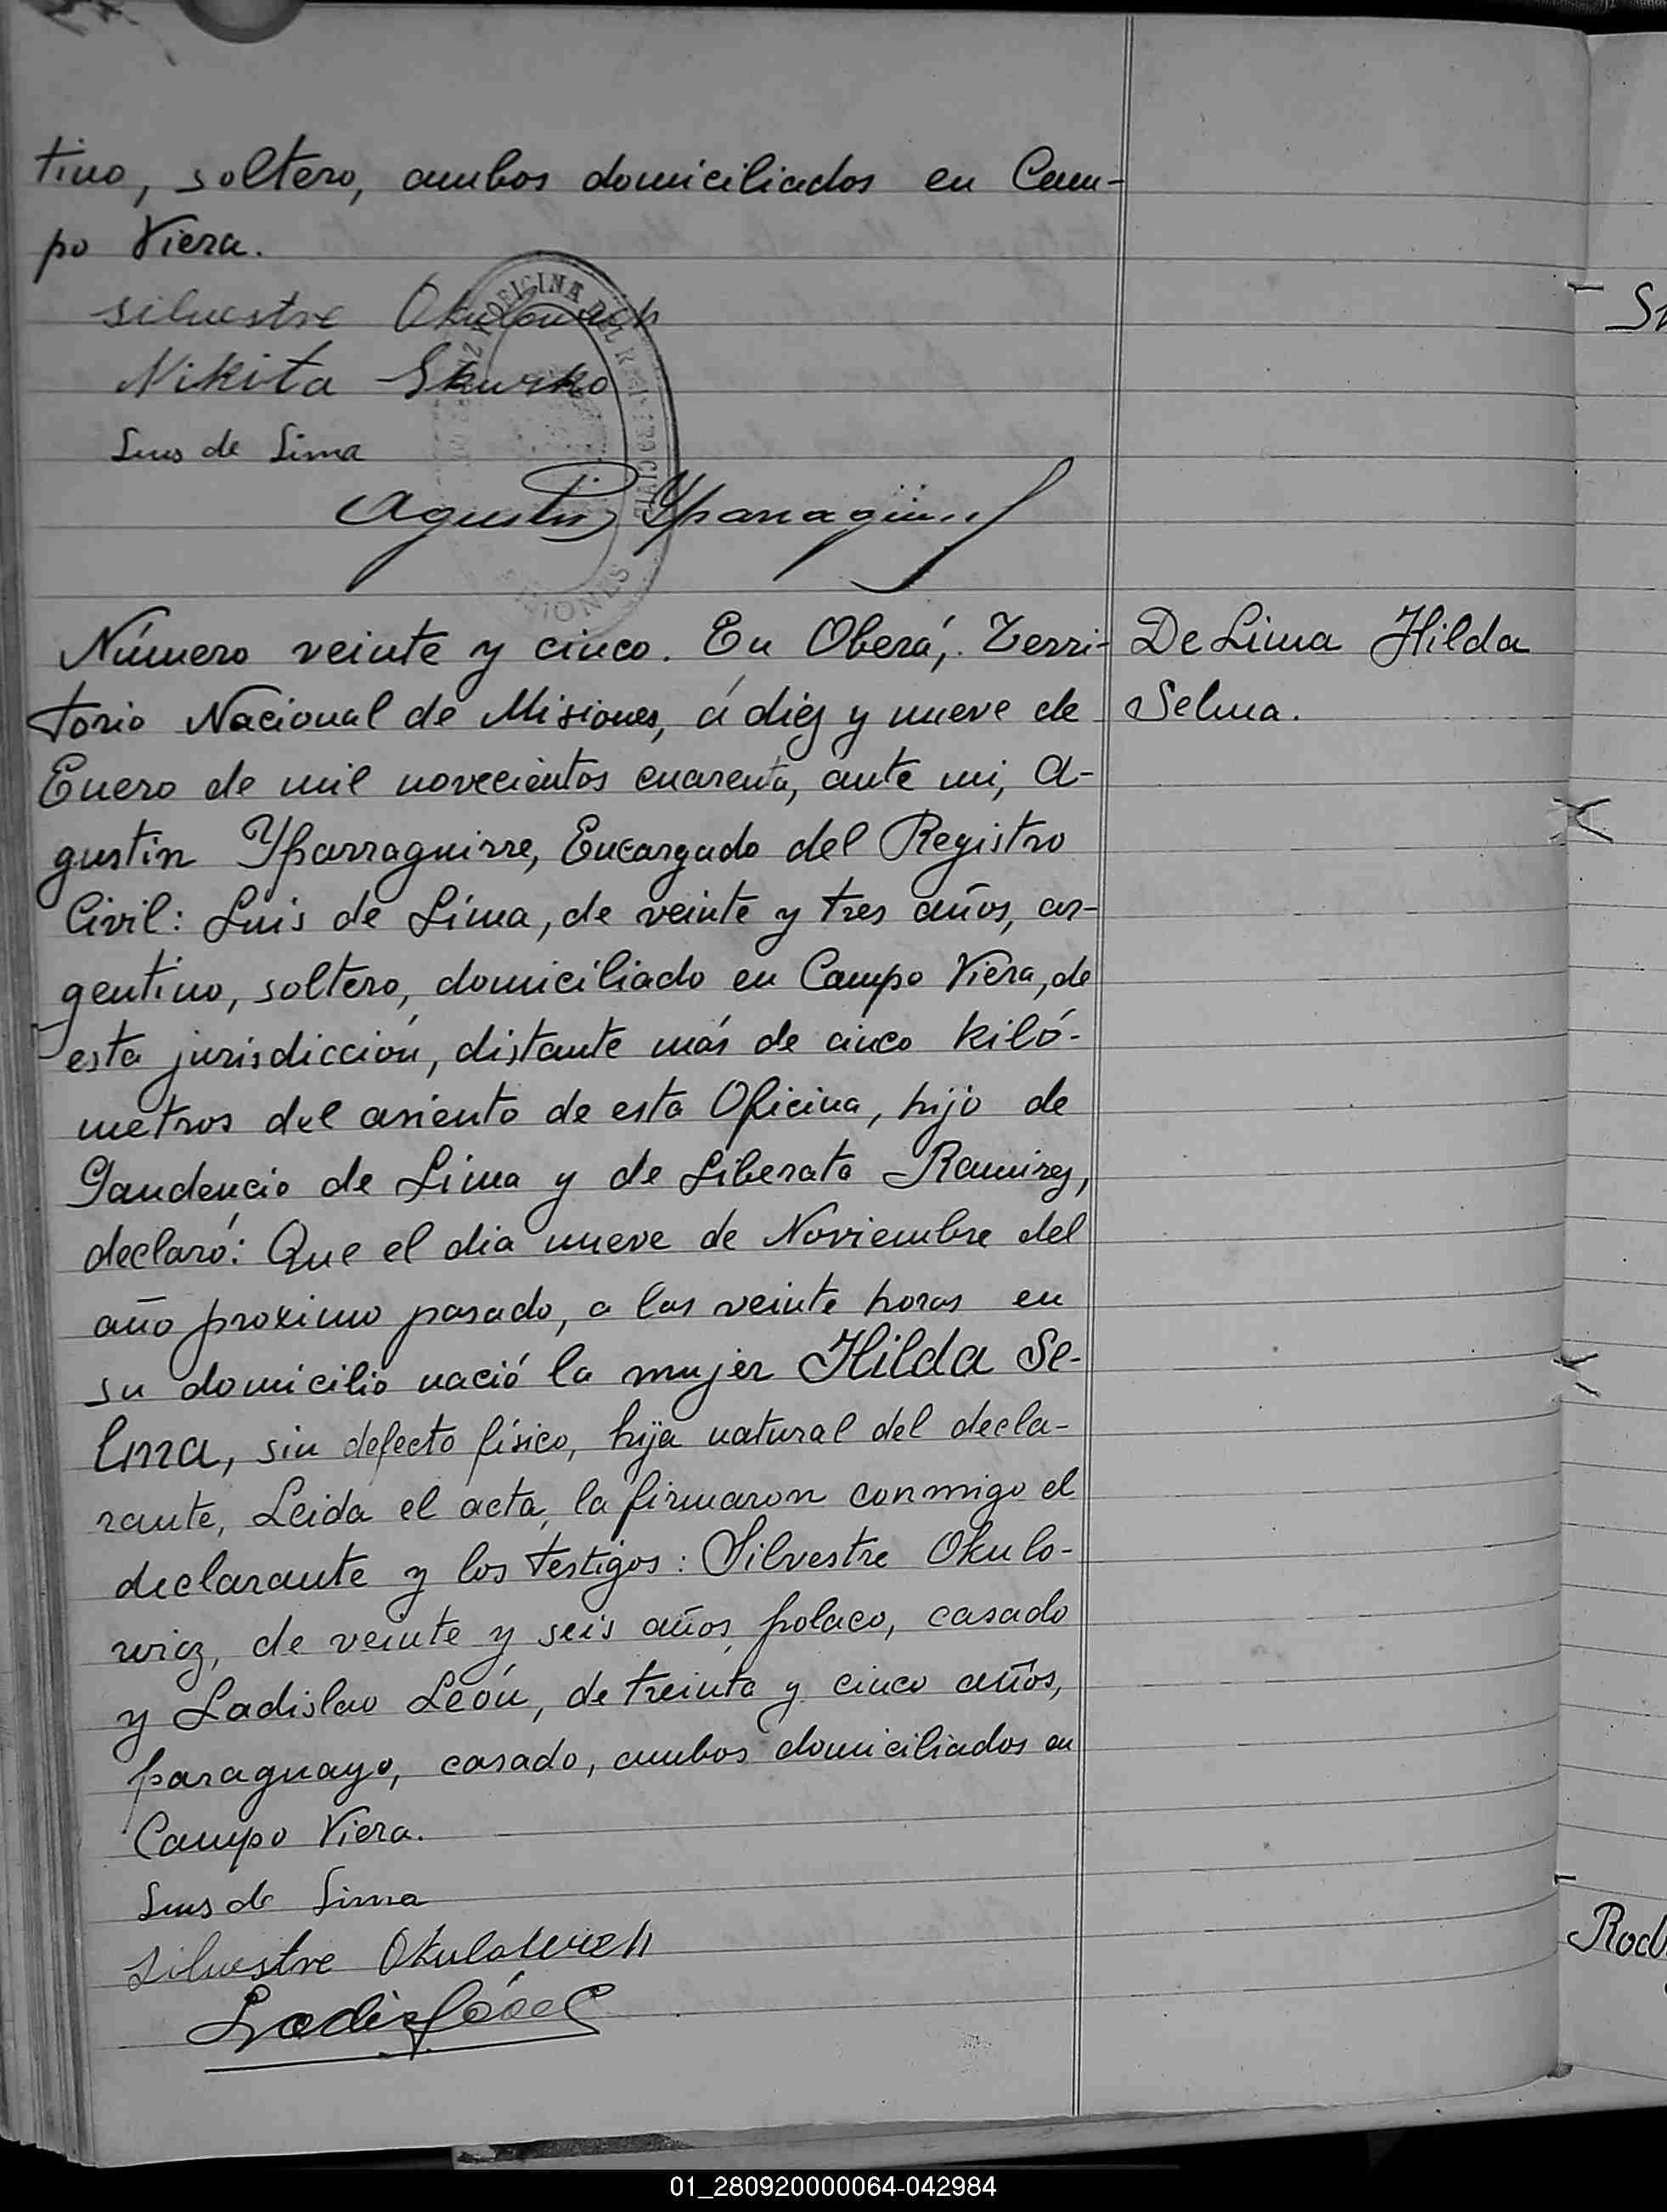 tino, soltero, ambos domiciliados en Cam-
po Viera.
silvestre Okulowich
Nikita Skurko
Luis de Lima
Agustin Yparraguirre
Número veinte y cinco. En Oberá, Terri-
torio Nacional de Misiones, á diez y nueve de
Enero de mil novecientos cuarenta, ante mi, A-
gustin Yparraguirre, Encargado del Registro
Civil: Luis de Lima, de veinte y tres años, ar-
gentino, soltero, domiciliado en Campo Viera, de
esta jurisdicción, distante más de cinco kiló-
metros del asiento de esta Oficina, hijo de
Gaudencio de Lima y de Liberata Ramirez,
declaró: Que el dia nueve de Noviembre del
año proximo pasado, a las veinte horas en
su domicilio nació la mujer Hilda Se-
lma, sin defecto físico, hija natural del decla-
rante, Leida el acta, la firmaron conmigo el
declarante y los testigos: Silvestre Okulo-
wicz, de veinte y seis años, polaco, casado
y Ladislao León, de treinta y cinco años,
paraguayo, casado, ambos domiciliados en
Campo Viera.
Luis de Lima
silvestre Okulowich
De Lima Hilda
Selma.
Rod
01_280920000064-042984